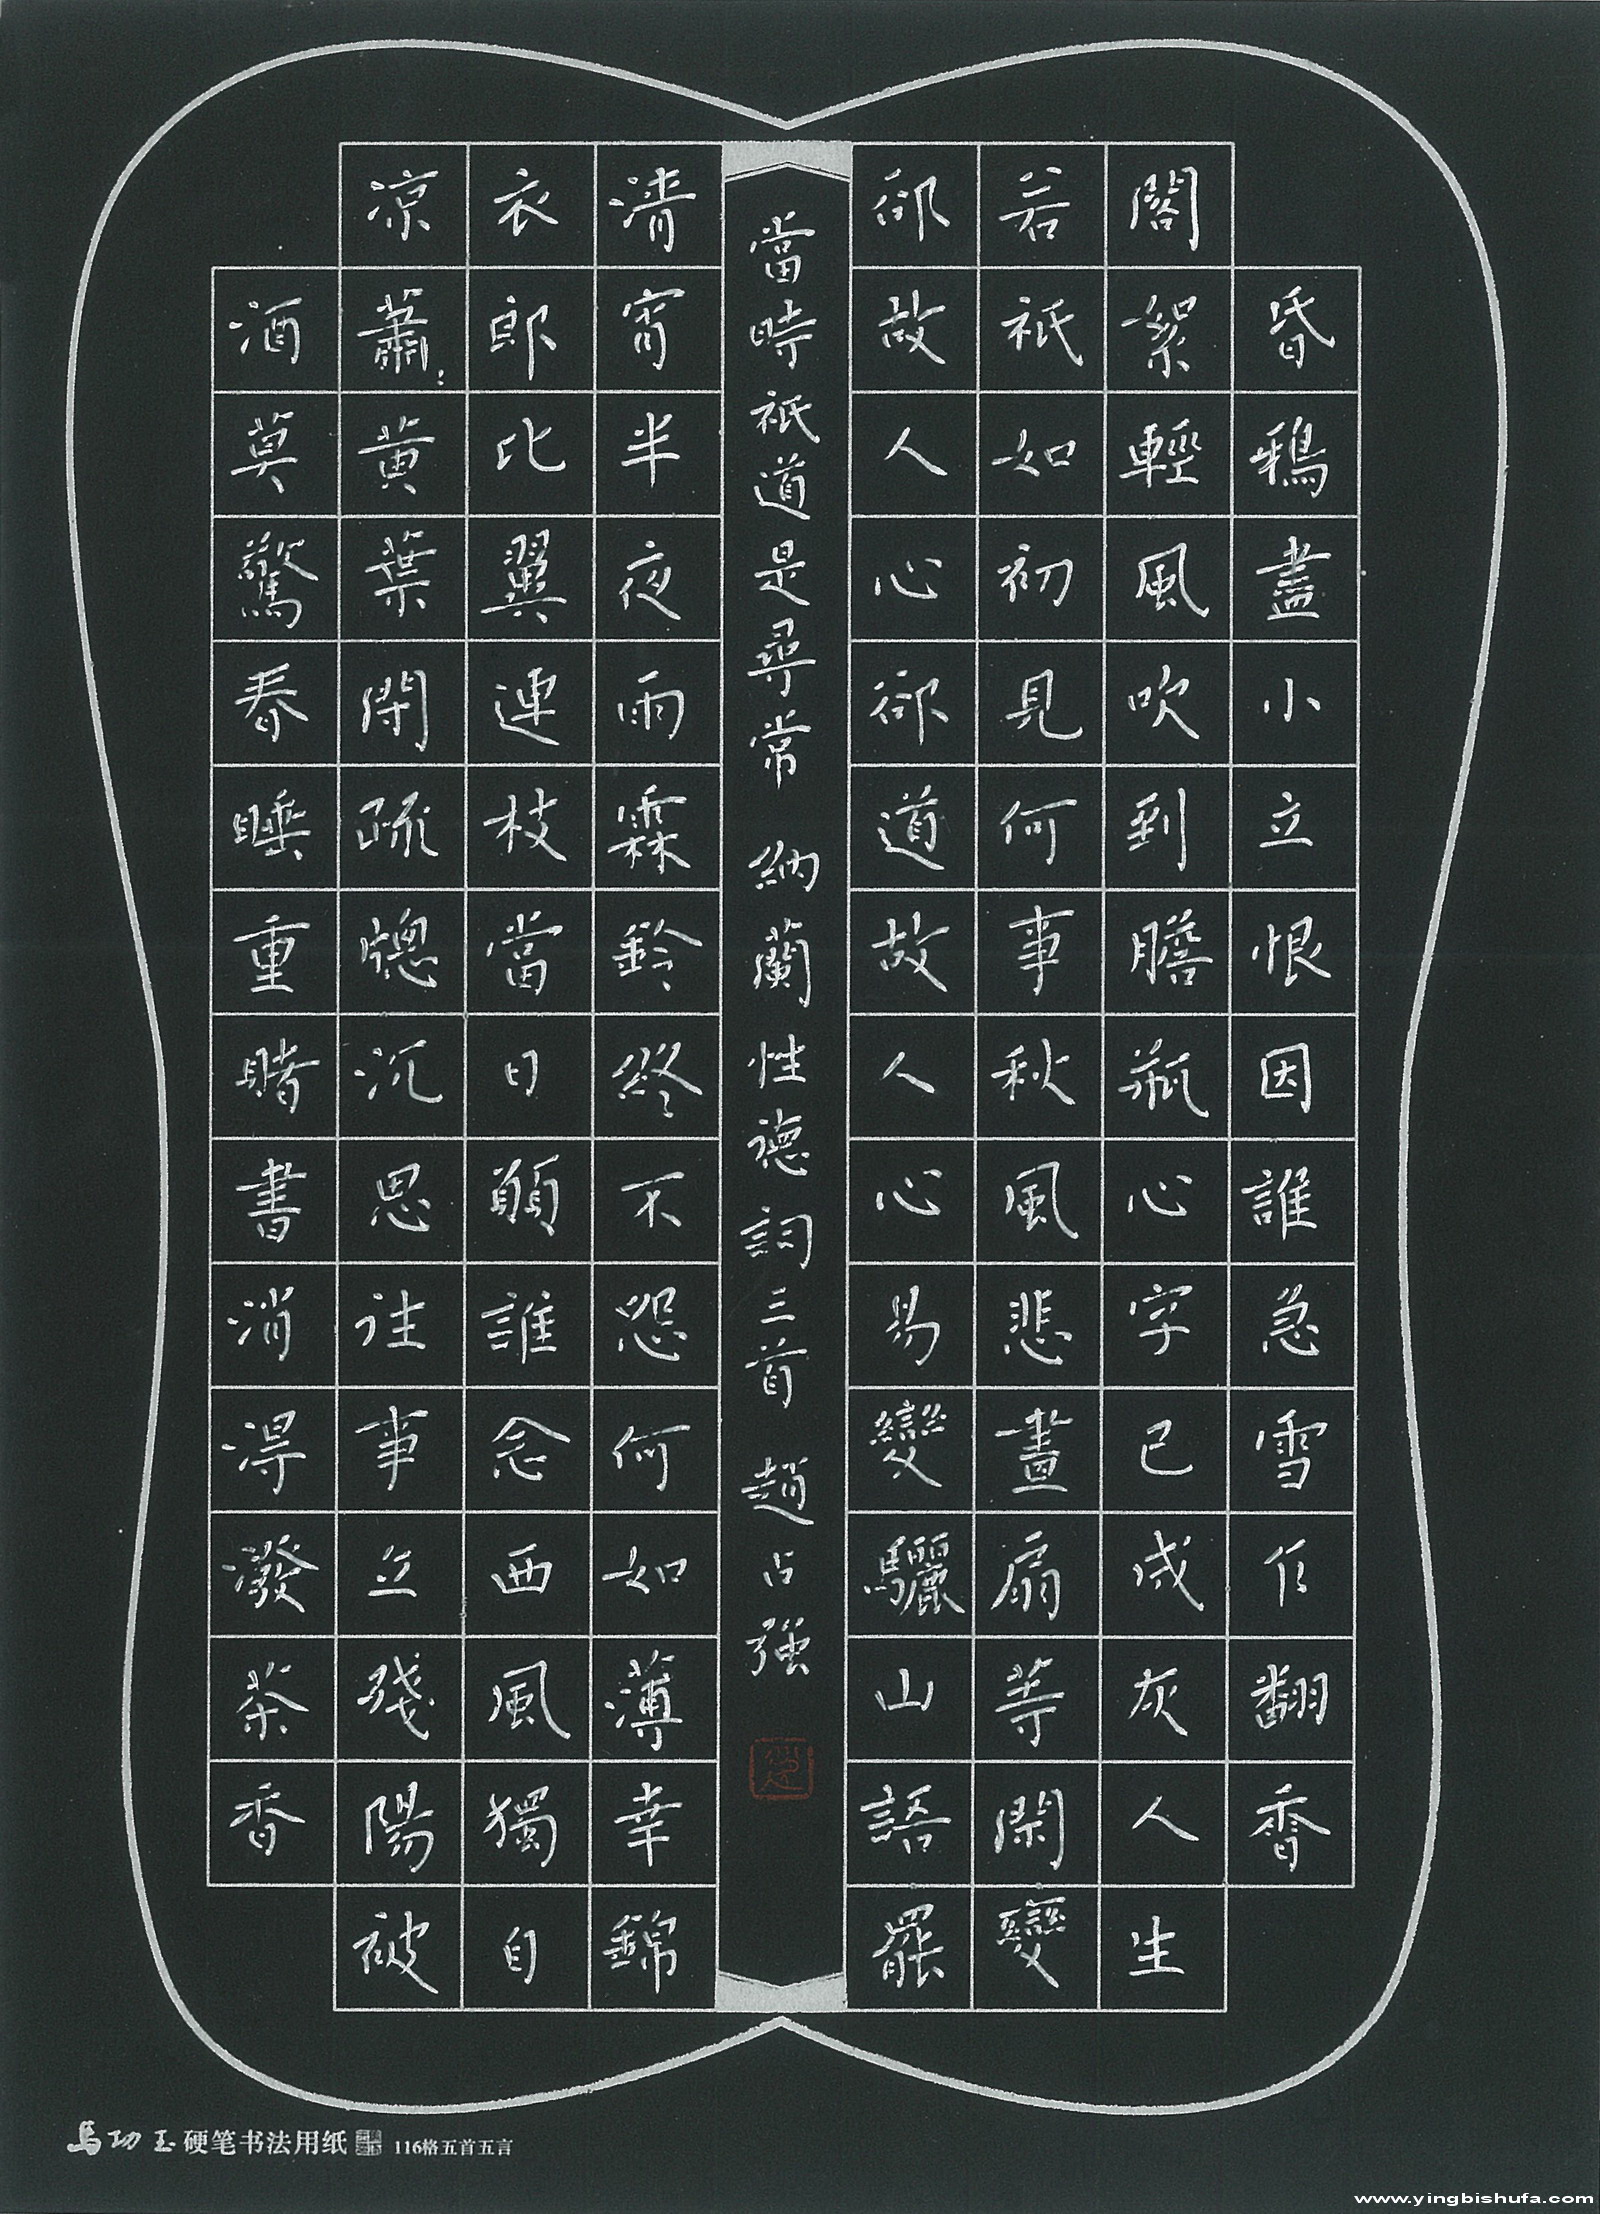 昏鵶盡小立恨因誰急雪乍翻香
閣絮輕風吹到膽瓶心字已成灰人生
若祇如初見何事秋風悲畫扇等閑變
卻故人心卻道故人心易變驪山語罷
清宵半夜雨霖鈴終不怨何如薄幸錦
衣郎比翼連枝當日願誰念西風獨自
涼蕭:黄葉閉疏窻沉思往事立殘陽被
酒莫驚春睡重賭書消得潑茶香
當時祇道是尋常 納蘭性德詞三首 趙占強
馬功玉硬笔书法用纸 116格五首五言
www.yingbishufa.com